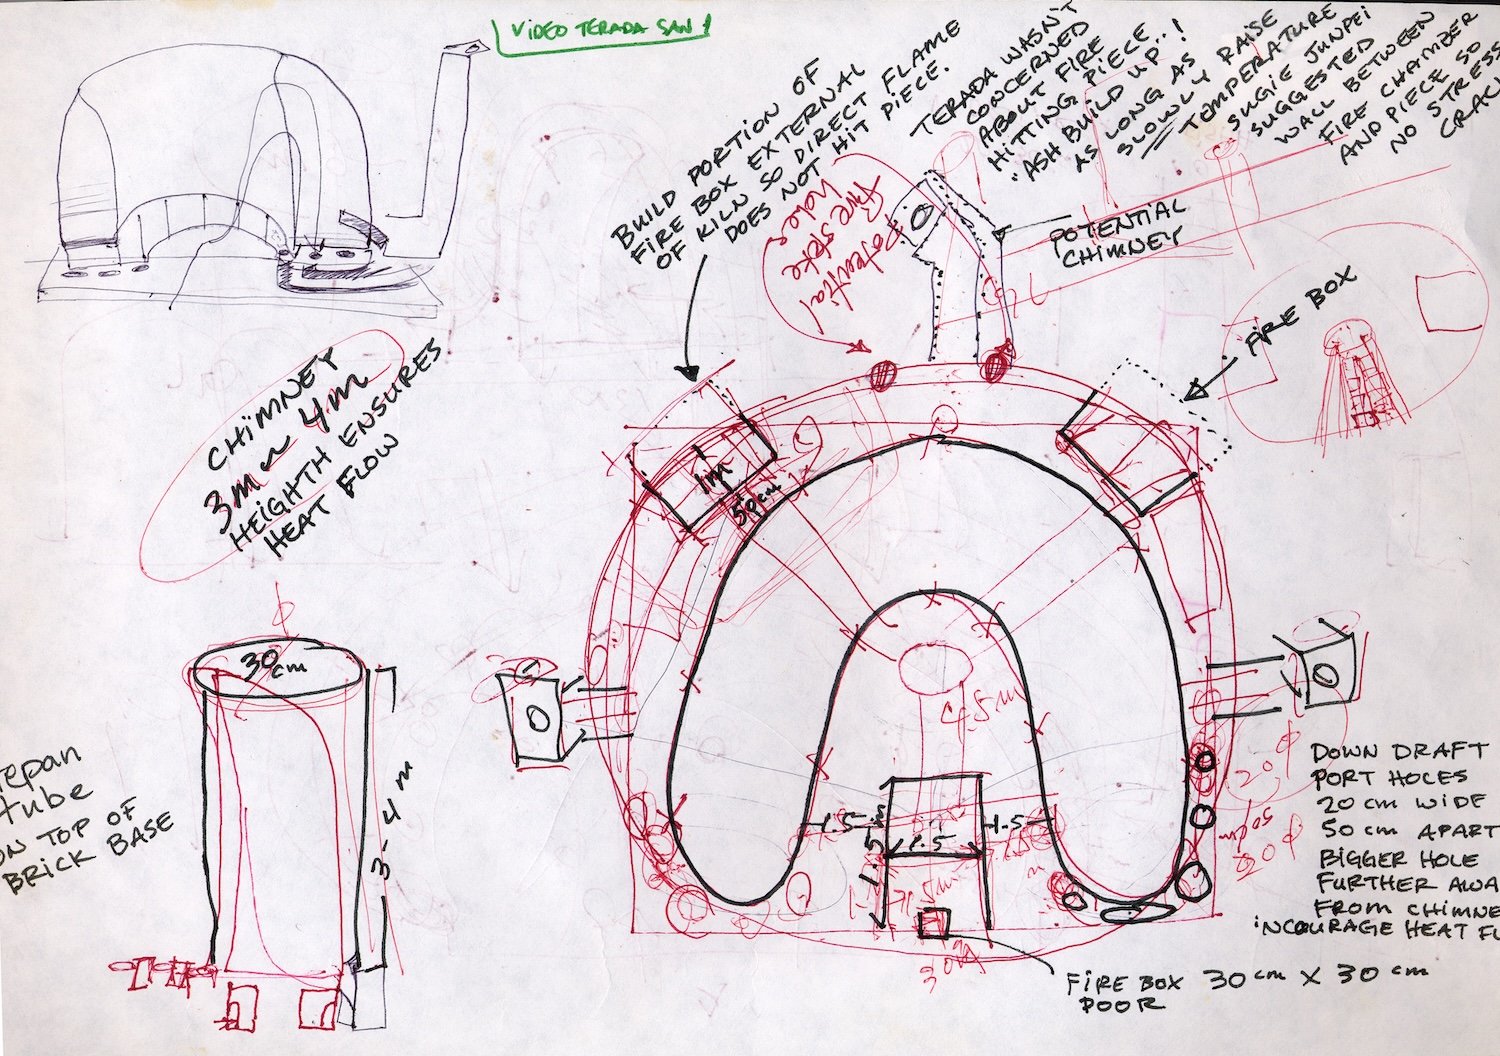 VIDEO TERADA SAN!
BUILD PORTION OF
FIRE BOX EXTERNAL
OF KILN SO DIRECT FLAME
DOES NOT HIT PIECE.
TERADA WASN'T
CONCERNED
ABOUT FIRE
HITTING PIECE
AS LONG AS
"ASH BUILD UP"!
SLOWLY RAISE
TEMPERATURE
SUGIE JUNPEI
SUGGESTED
WALL BETWEEN
FIRE CHAMBER
AND PIECE SO
NO STRESS
CRAC
Potential
fire stoke
hole
POTENTIAL
CHIMNEY
FIRE BOX
CHIMNEY
3m ~ 4m
HEIGHTH ENSURES
HEAT FLOW
1m
50cm
30cm
3-4 m
tepan
tube
ON TOP OF
BRICK BASE
4.5m
1.5
1.5m
1.5
1.5
20φ
50cm
20φ
30φ
DOWN DRAFT
PORT HOLES
20 cm WIDE
50 cm APART
BIGGER HOLE
FURTHER AWA
FROM CHIMNE
INCOURAGE HEAT FL
FIRE BOX 30 cm X 30 cm
DOOR